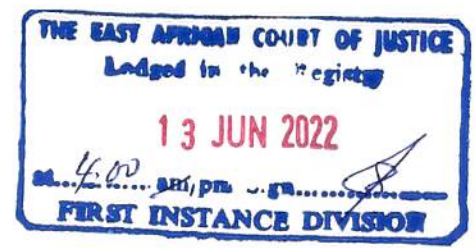 THE EAST AFRICAN COURT OF JUSTICE
Lodged in the Registry
13 JUN 2022
at....4:00.... am/pm Sign..............
FIRST INSTANCE DIVISION